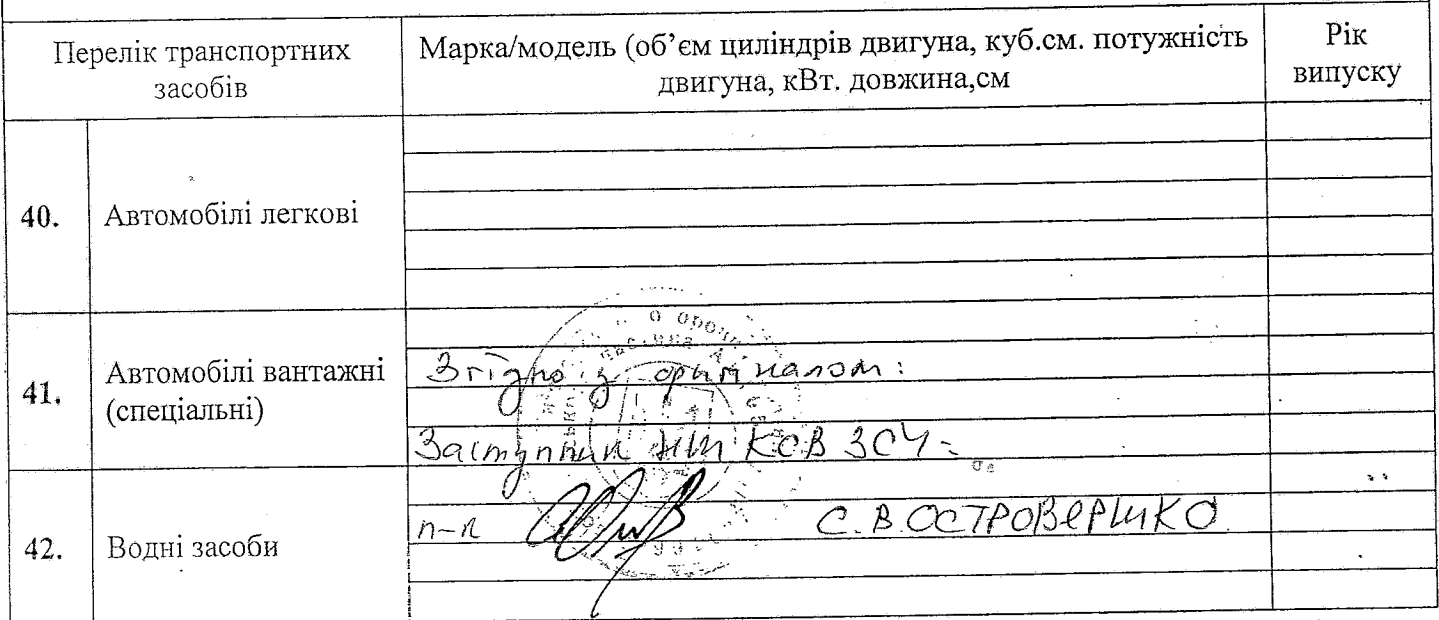 Перелік транспортних засобів
Марка/модель (об’єм циліндрів двигуна, куб.см. потужність двигуна, кВт. довжина,см
Рік випуску
40.
Автомобілі легкові
41.
Автомобілі вантажні
(спеціальні)
Згідно з оригіналом:
Заступник КСВ ЗСУ-
42.
Водні засоби
п-к
С.В.ОСТРОВЕРШКО